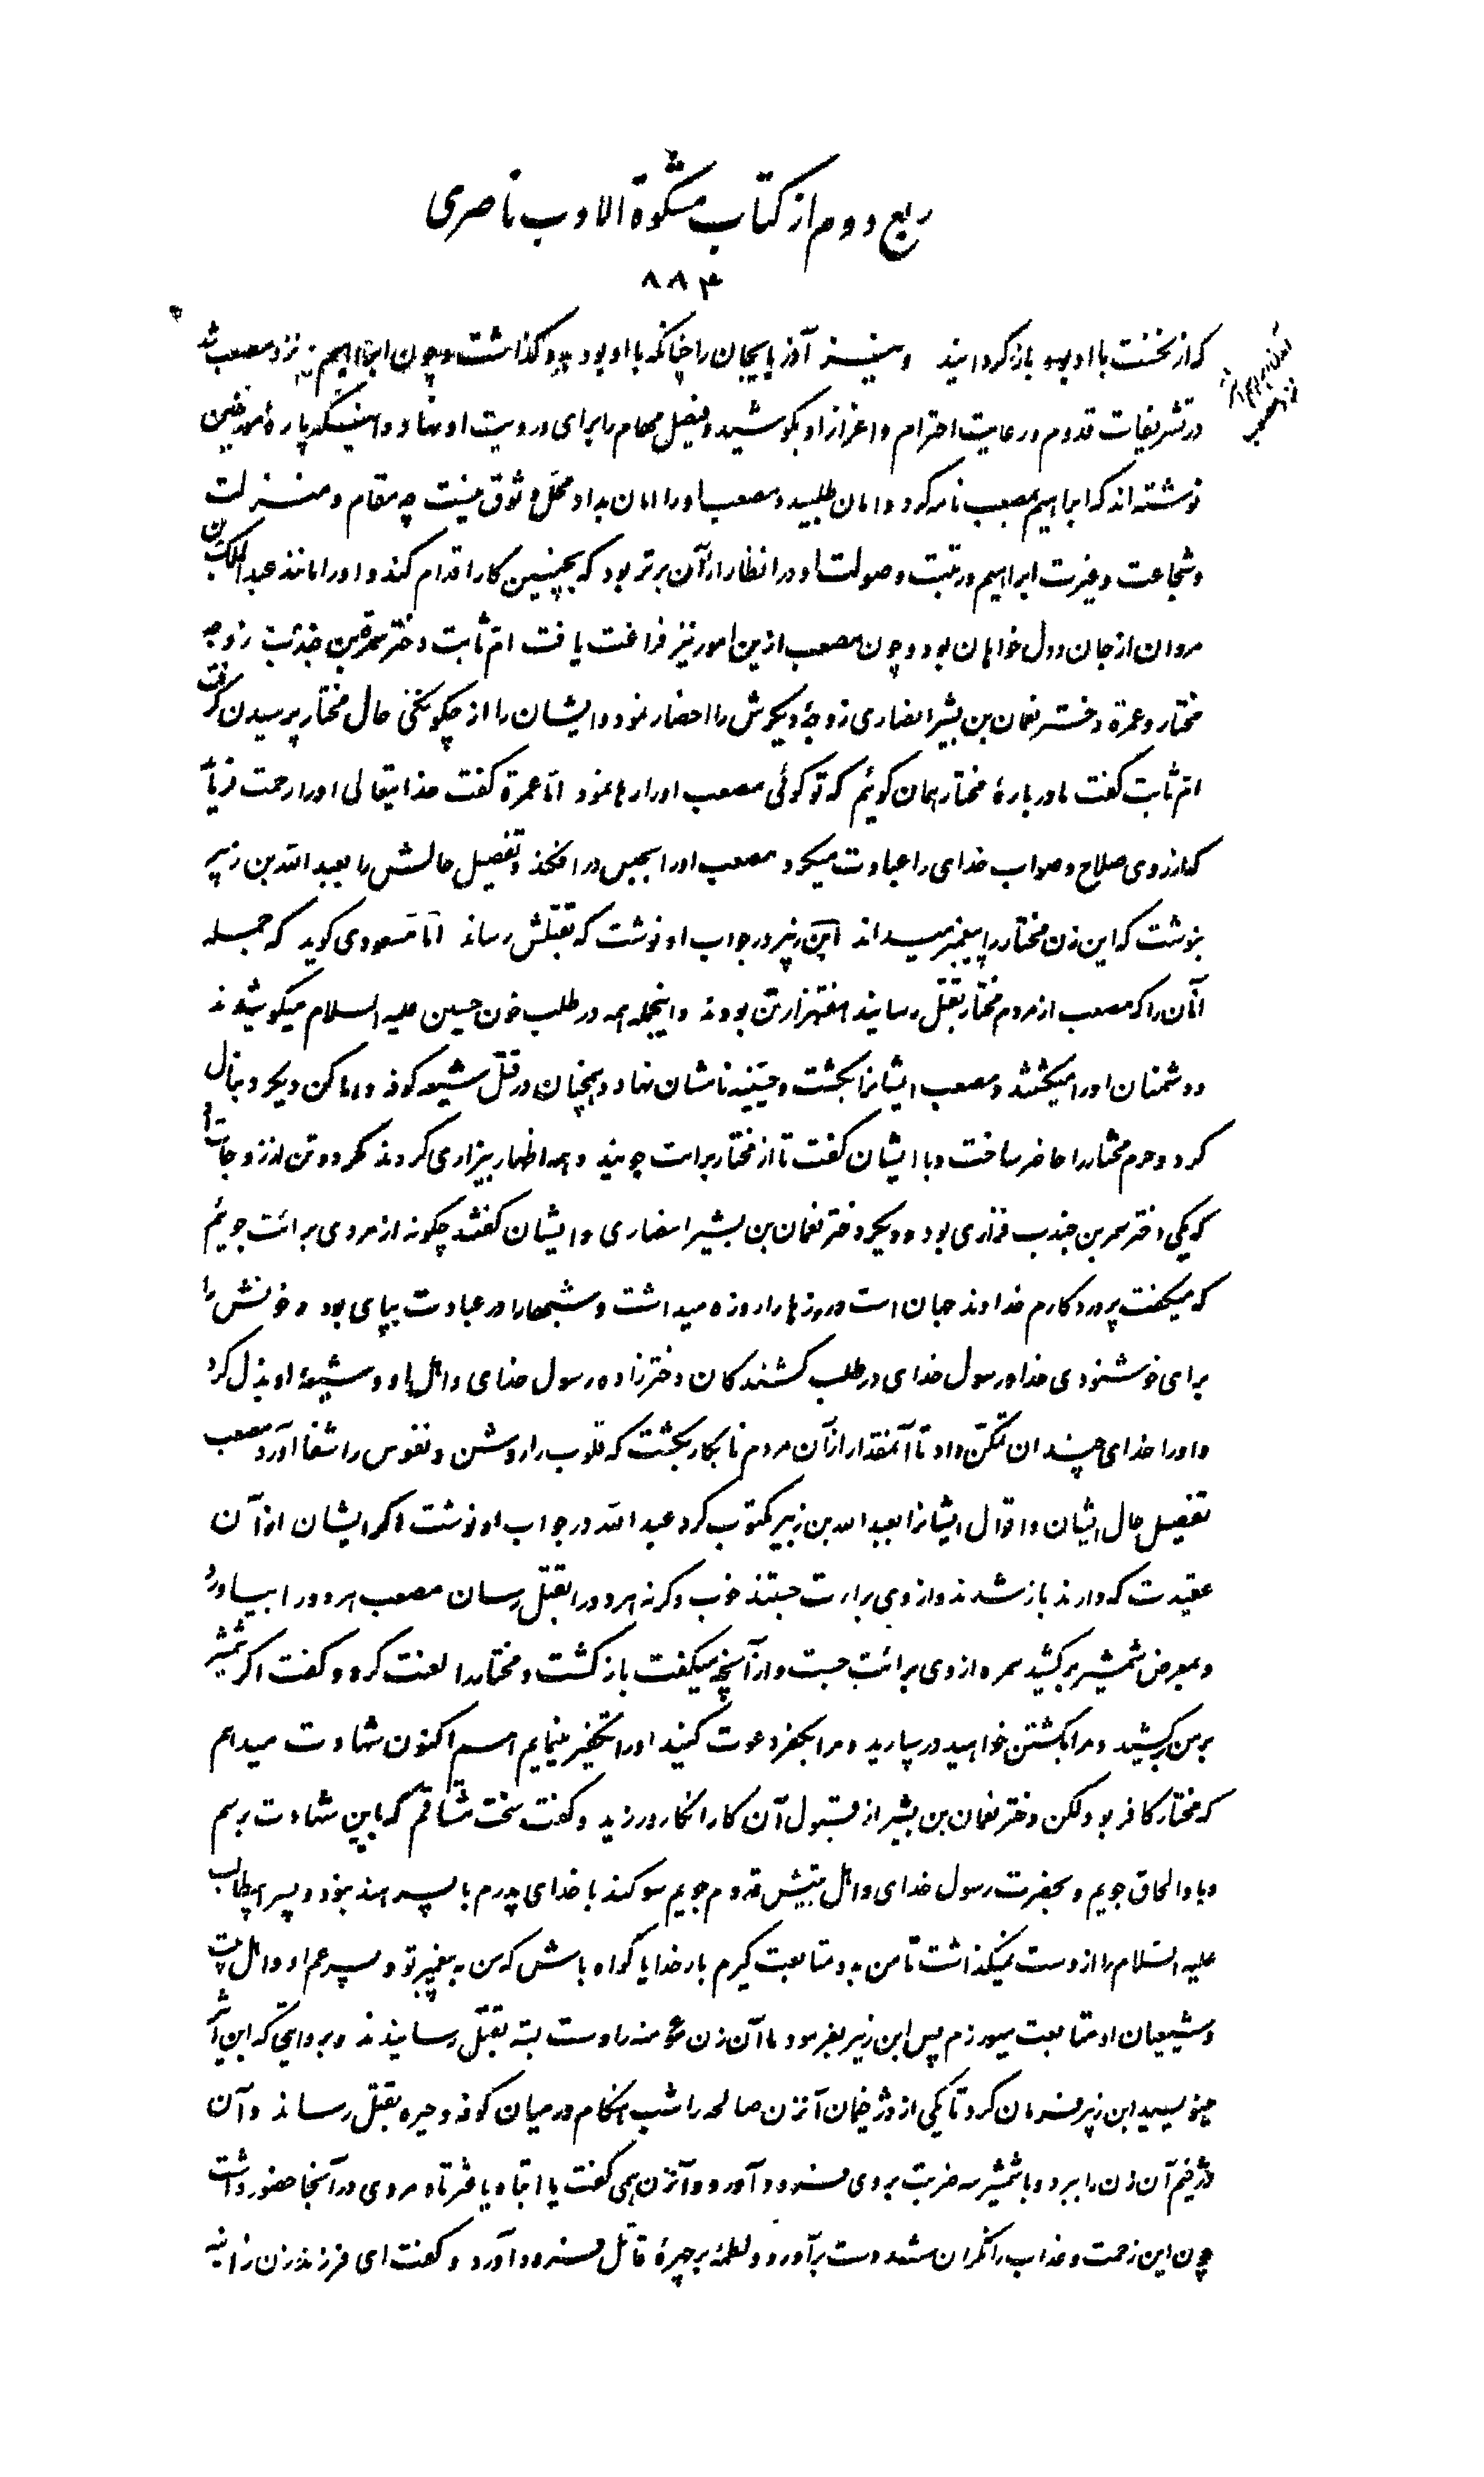 ربع دوم از کتاب مشکوة الادب ناصری
۸۸۴
که از نخست با او بود بازگردانید و نیز آذربایجان را چنانکه با او بود بدو گذاشت و چون ابراهیم نزد مصعب شد
در تشریفات قدوم و رعایت احترام و اعزاز او بکوشید و فیصل مهام را برای و رویت او نهاد و اینکه پارهٔ مورخین
نوشته‌اند که ابراهیم بمصعب نامه کرد و امان طلبید و مصعب او را امان بداد محل وثوق نیست چه مقام و منزلت
و شجاعت و غیرت ابراهیم و رتبت و صولت او در انظار از آن برتر بود که بچنین کار اقدام کند و او را مانند عبدالملک بن
مروان از جان و دل خواهان بود و چون مصعب ازین امور نیز فراغت یافت ام ثابت دختر سمرة بن جندب زوجه
مختار و عمرة دختر نعمان بن بشیر انصاری زوجهٔ دیگرش را احضار نمود و ایشان را از چگونگی حال مختار پرسیدن گرفت
ام ثابت گفت ما در بارهٔ مختار همان گوئیم که تو گوئی مصعب او را رها نمود اما عمرة گفت خدایتعالی او را رحمت فرماید
که از روی صلاح و صواب خدای را عبادت میکرد مصعب او را بحبس در افکند و تفصیل حالش را بعبد الله بن زبیر
بنوشت که این زن مختار را پیغمبر میداند ابن زبیر در جواب او نوشت که بقتلش رساند اما مسعودی گوید که جمله
آنان را که مصعب از مردم مختار بقتل رسانید هفتهزار تن بودند و اینجمله همه در طلب خون حسین علیه السلام میکوشیدند
و دشمنان او را میکشتند و مصعب ایشانرا بکشت و حسینیه نامشان نهاد و همچنان در قتل شیعه کوفه و اماکن دیگر دنبال
کرد و حرم مختار را حاضر ساخت و با ایشان گفت تا از مختار براءت جویند و همه اظهار بیزاری کردند مگر دو تن از زوجات او
که یکی دختر سمر بن جندب فزاری بود و دیگر دختر نعمان بن بشیر انصاری و ایشان گفتند چگونه از مردی برائت جوئیم
که میگفت پروردگارم خداوند جهان است و روزها را روزه میداشت و شبها را در عبادت بپای بود و خونش را
برای خوشنودی خدا و رسول خدای در طلب کشندگان دخترزاده رسول خدای و اهل او و شیعهٔ او بذل کرد
و او را خدای چندان تمکن داد تا آنمقدار از آن مردم نابکار بکشت که قلوب را روشن و نفوس را شفا آورد مصعب
تفصیل حال ایشان و اقوال ایشانرا بعبد الله بن زبیر مکتوب کرد عبد الله در جواب او نوشت اگر ایشان از آن
عقیدت که دارند باز شدند و از وی براءت جستند خوب وگرنه هر دو را بقتل رسان مصعب هر دو را بیاورد
و بعرض شمشیر برکشید سمره از وی برائت جست و از آنچه میگفت بازگشت و مختار را لعنت کرد و گفت اگر شمشیر
بر من برکشید و مرا بکشتن خواهید در سپارید و مرا بکفر دعوت کنید او را تکفیر مینمایم هم اکنون شهادت میدهم
که مختار کافر بود لکن دختر نعمان بن بشیر از قبول آن کار انکار ورزید و گفت سخت مشتاقم که باین شهادت برسم
و با او الحاق جویم و بحضرت رسول خدای و اهل بیتش قدوم جویم سوگند با خدای پدرم با پسر هند بود و پسر ابیطالب
علیه السلام را از دست نمیگذاشت تا من بدو متابعت گیرم بار خدایا گواه باش که من به پیغمبر تو و پسر عم او و اهل بیت
و شیعیان او متابعت میورزم پس ابن زبیر بفرمود تا آن زن مؤمنه را دست بسته بقتل رسانیدند و بروایتی که ابن اثیر
مینویسد ابن زبیر فرمان کرد تا یکی از دژخیمان آنزن صالحه را شب هنگام در میان کوفه و حیره بقتل رساند و آن
دژخیم آن زن را ببرد و با شمشیر سه ضربت بروی فرود آورد و آنزن همی گفت یا ابتاه یا عترتاه مردی در آنجا حضور داشت
چون این زحمت و عذاب را نگران شد دست برآورد و لطمهٔ بر چهرهٔ قاتل فرود آورد و گفت ای فرزند زن زانیه